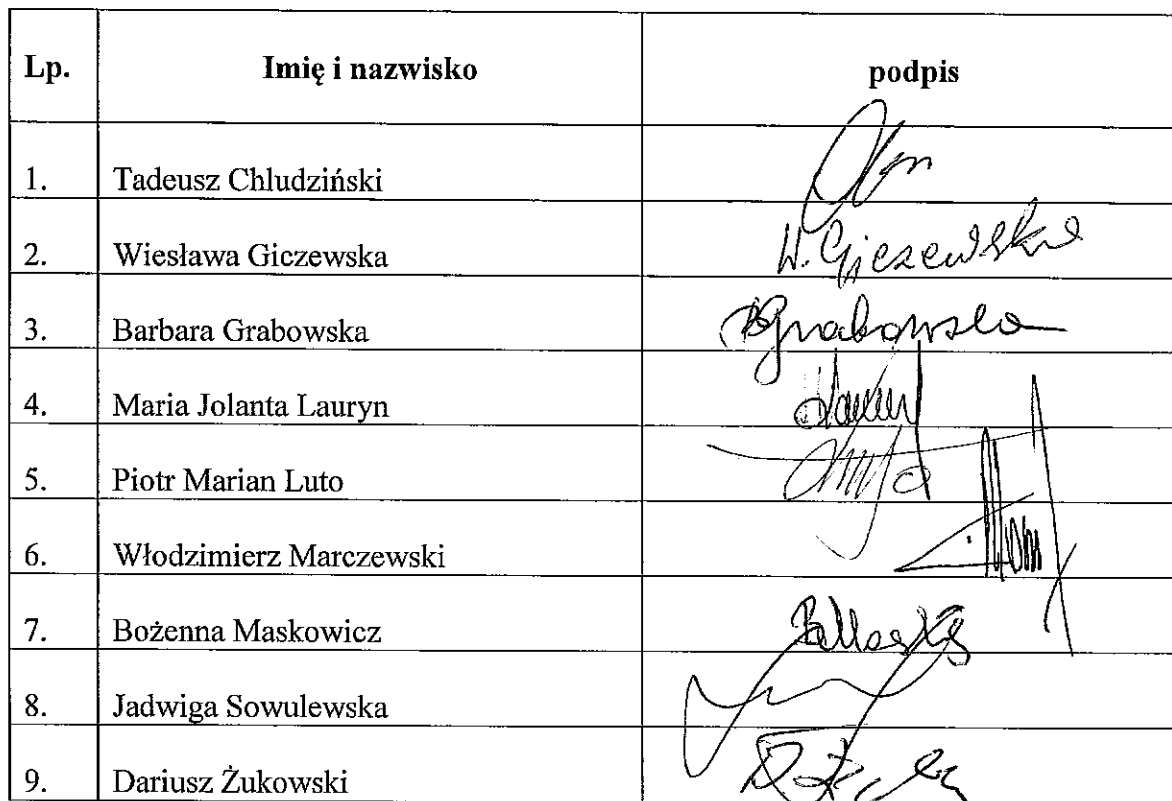 Lp. Imię i nazwisko podpis
1. Tadeusz Chludziński
2. Wiesława Giczewska W. Giczewska
3. Barbara Grabowska BGrabowska
4. Maria Jolanta Lauryn
5. Piotr Marian Luto
6. Włodzimierz Marczewski
7. Bożenna Maskowicz
8. Jadwiga Sowulewska
9. Dariusz Żukowski